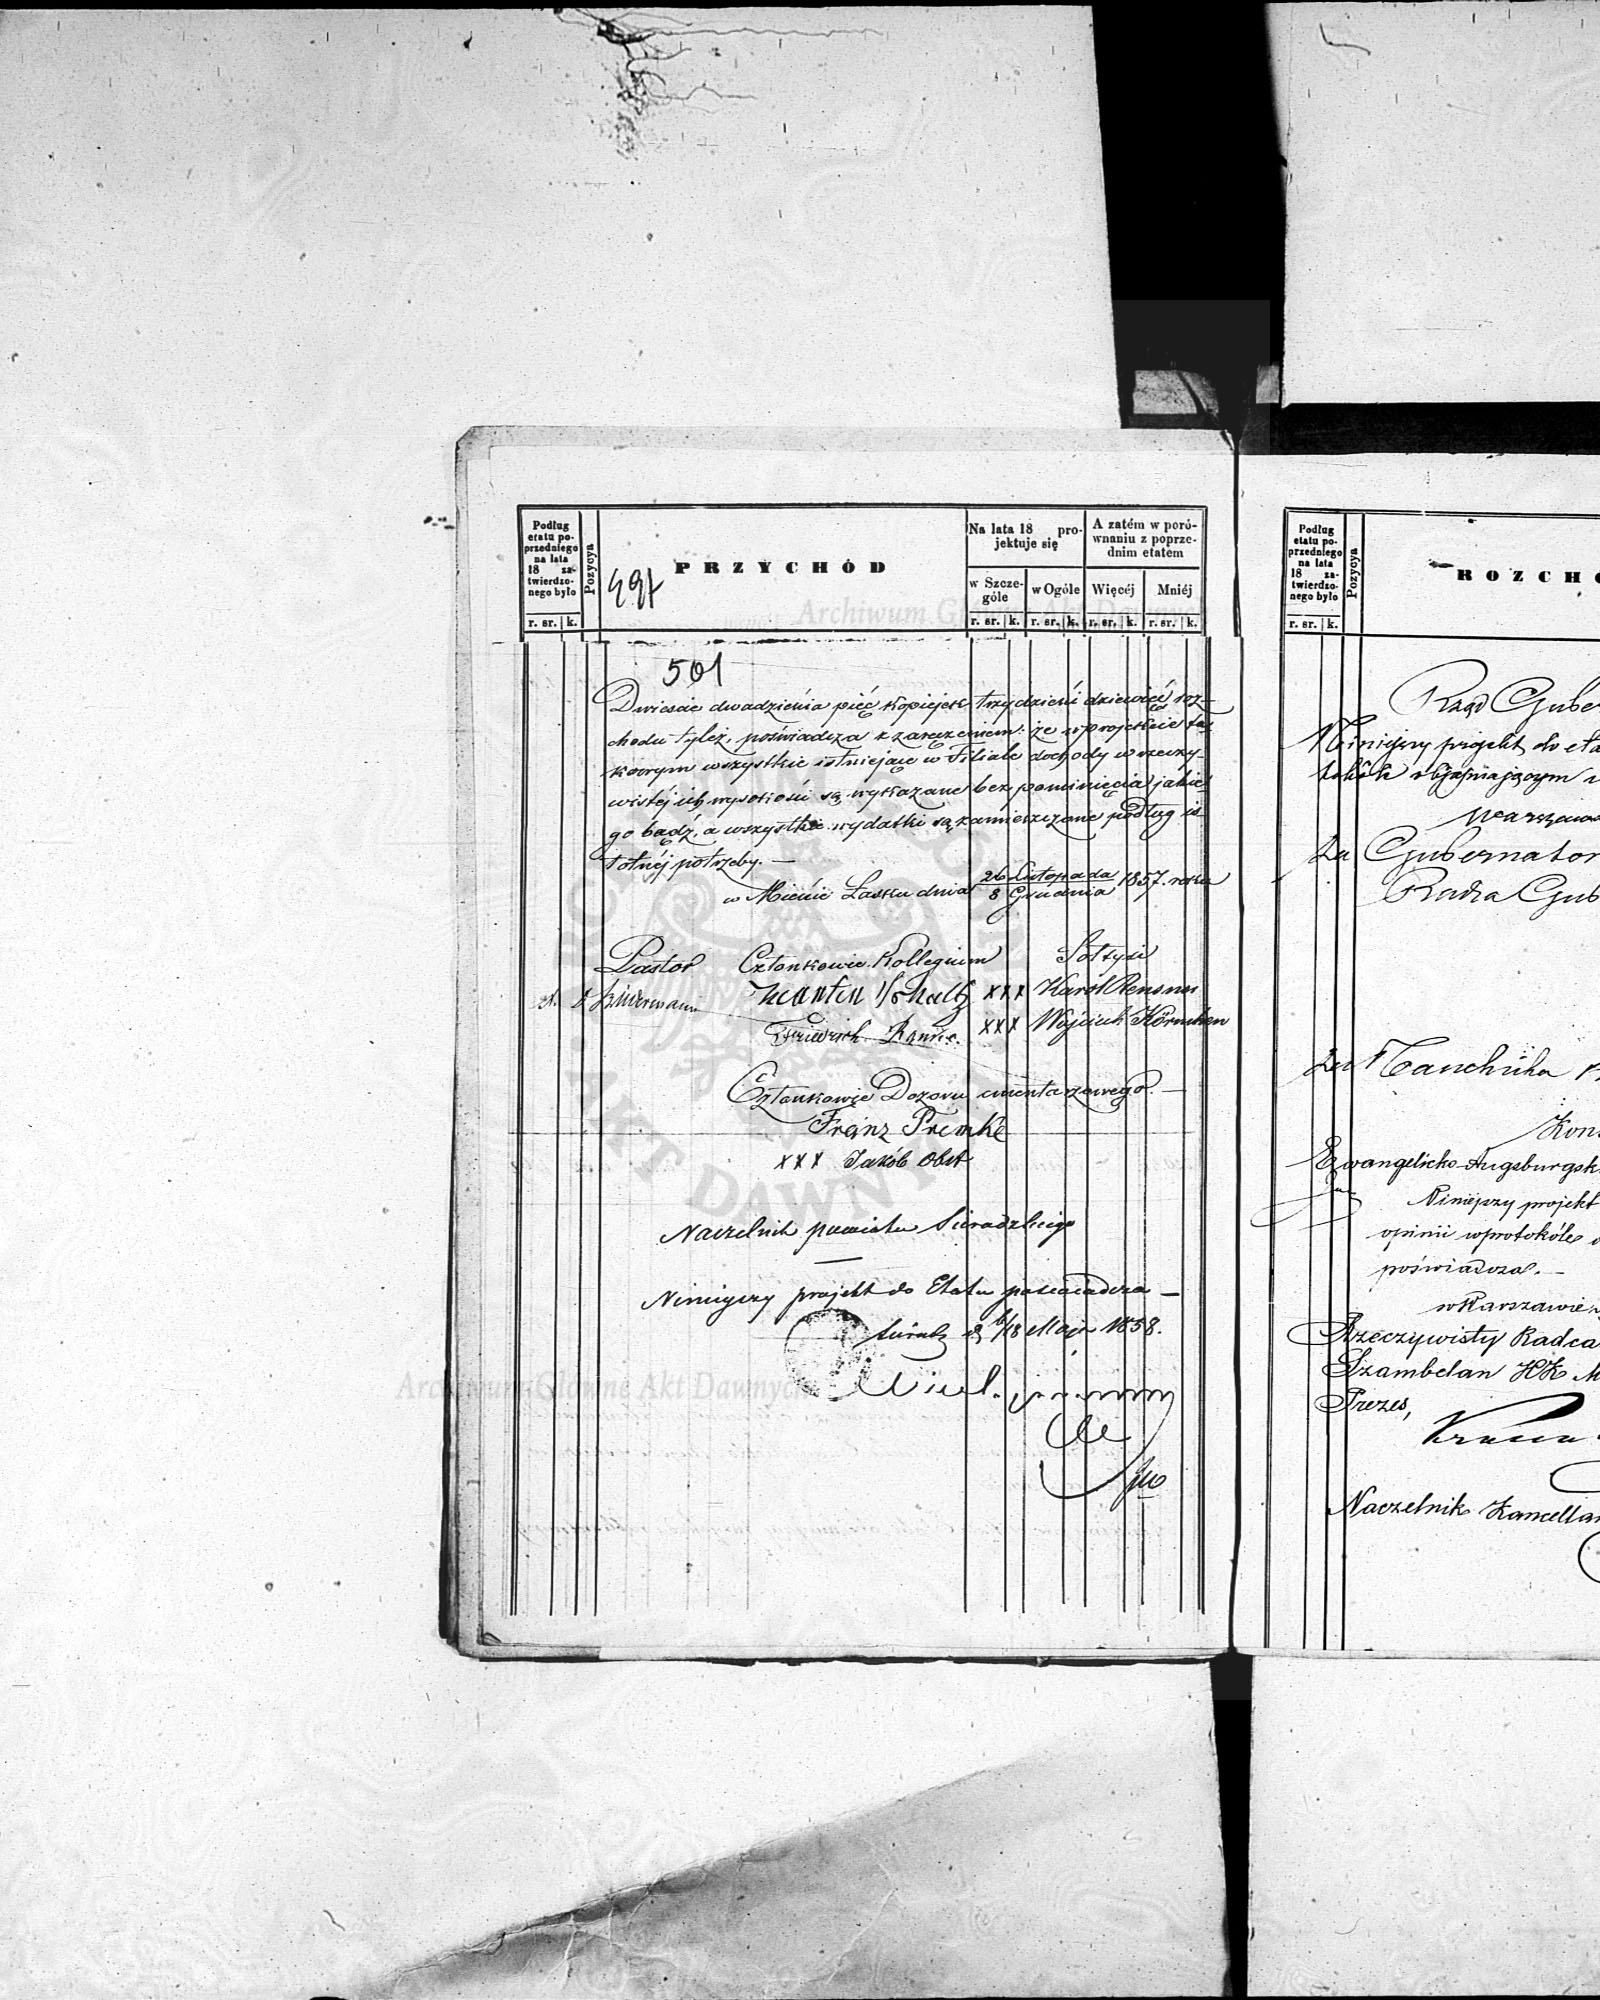 Podług
etatu po-
przedniego
na lata
18 za-
twierdzo-
nego było
r. sr. k.
Pozycya
PRZYCHÓD
Na lata 18 pro-
jektuje się
w Szcze-
góle
w Ogóle
r. sr. k. r. sr. k.
A zatém w poró-
wnaniu z poprze-
dnim etatem
Więcéj Mniéj
r. sr. k. r. sr. k.
497
501
Dwieście dwadzieścia pięć kopiejek trzydzieści dziewięć, roz-
chodu tyleż, poświadcza z zaręczeniem: że w projekcie ta-
kowym wszystkie istniejące w Filiale dochody w rzeczy-
wistéj ich wysokości są wykazane bez pominięcia jakie-
go bądź, a wszystkie wydatki są zamieszczone podług is-
totnéj potrzeby. —
w Mieście Łasku dnia 26 Listopada / 8 Grudnia 1857. roku
Pastor Członkowie Kollegium Sołtysi
Martin xxx Karól
Friedrich xxx Wojciech
Członkowie Dozoru cmentarzowego. —
Franz Premke
xxx Jakób Obst
Naczelnik powiatu Sieradzkiego
Niniejszy projekt do Etatu poświadcza —
Sieradz d. 6/18 Maja 1858.
Archiwum Główne Akt Dawnych
Archiwum Główne Akt Dawnych
AKT DAWNYCH
Podług
etatu po-
przedniego
na lata
18 za-
twierdzo-
nego było
r. sr. k.
Pozycya
ROZCHO
Rząd Guber
Niniejszy projekt do eta
tokóle objaśniającym
Warszawa
Za Gubernator
Radca Gub
Za Naczelnika
Kons
Ewangelicko-Augsburgsk
Niniejszy projekt
opinii w protokóle
poświadcza. —
w Warszawie
Rzeczywisty Radca
Szambelan
Prezes,
Naczelnik Kancellar